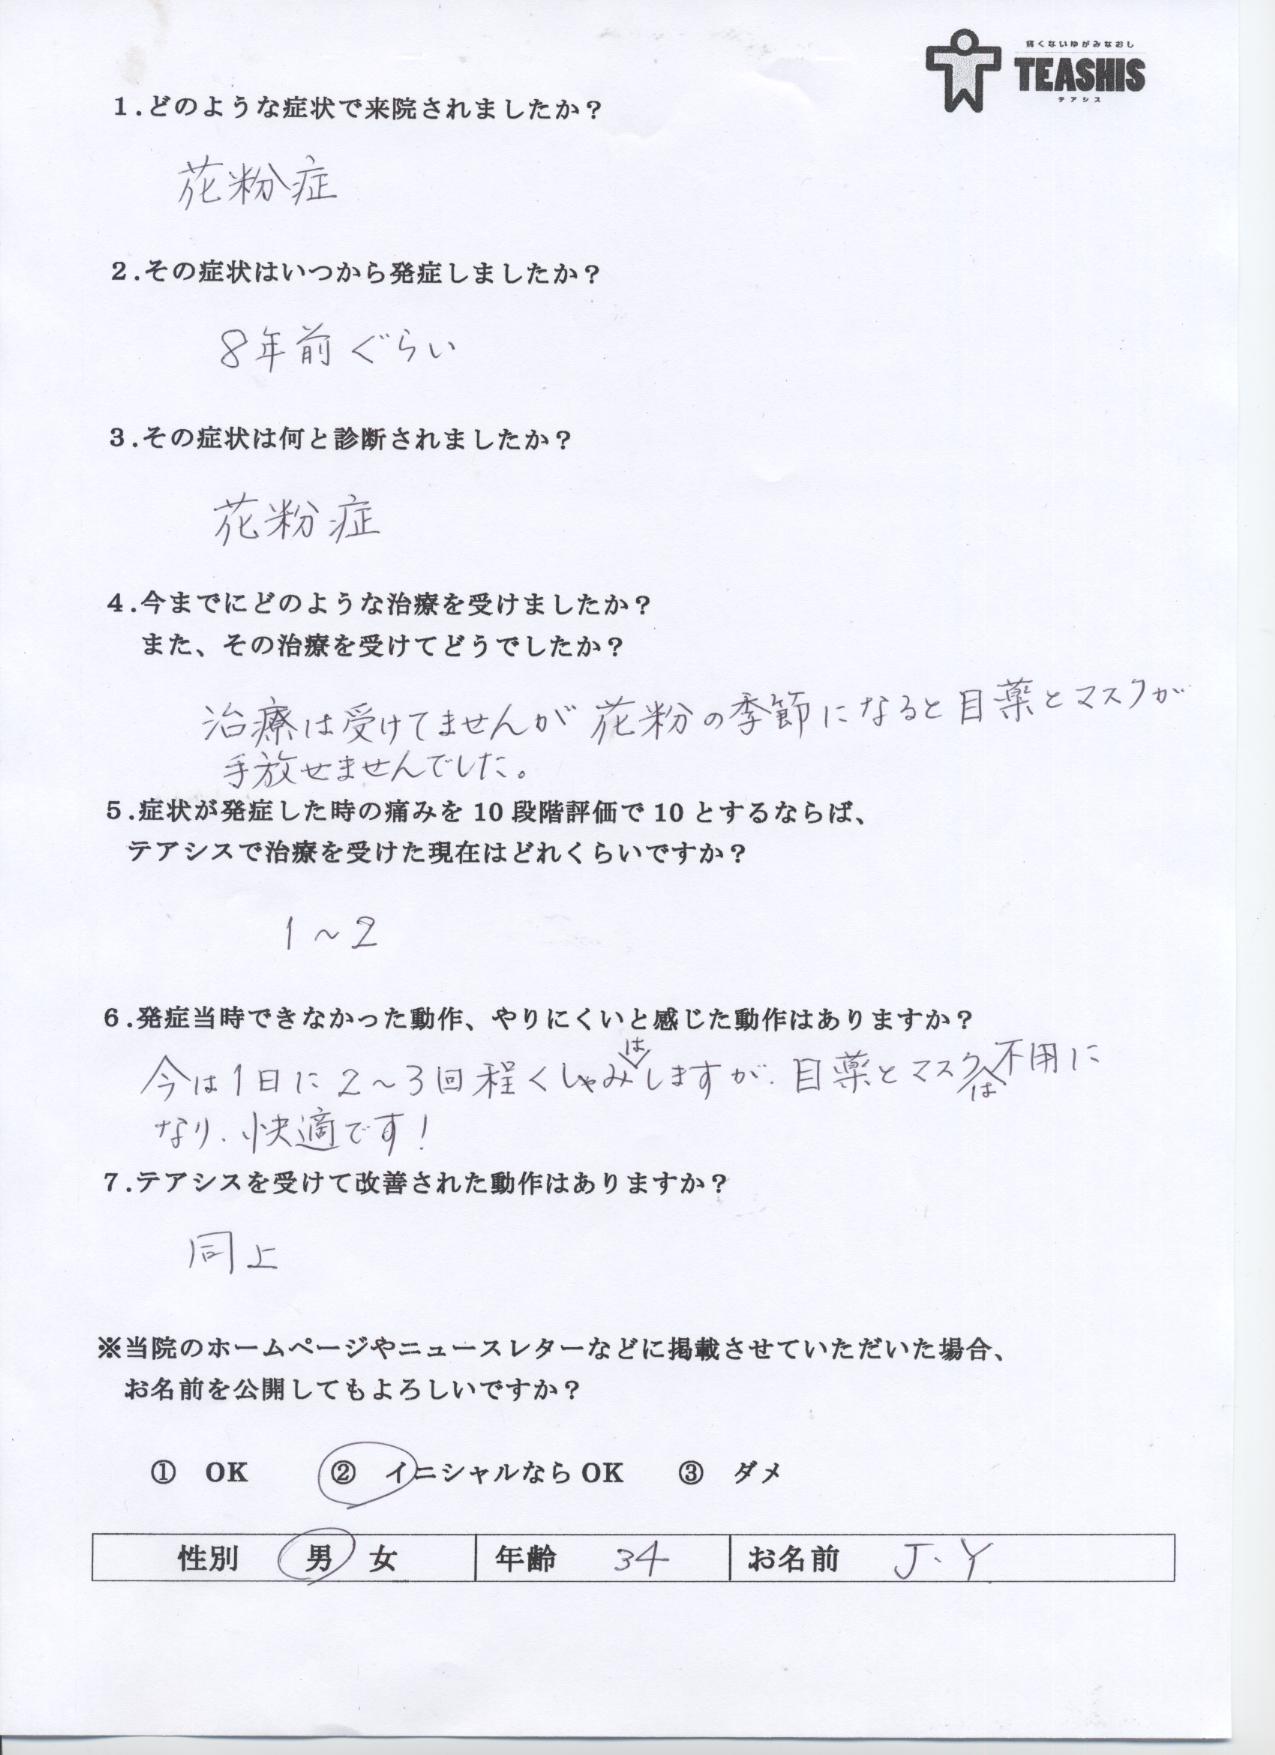 痛くないゆがみなおし
TEASHIS
テアシス
1.どのような症状で来院されましたか？
花粉症
2.その症状はいつから発症しましたか？
8年前ぐらい
3.その症状は何と診断されましたか？
花粉症
4.今までにどのような治療を受けましたか？
また、その治療を受けてどうでしたか？
治療は受けてませんが花粉の季節になると目薬とマスクが
手放せませんでした。
5.症状が発症した時の痛みを10段階評価で10とするならば、
テアシスで治療を受けた現在はどれくらいですか？
1～2
6.発症当時できなかった動作、やりにくいと感じた動作はありますか？
今は1日に2～3回程くしゃみはしますが、目薬とマスクは不用に
なり、快適です！
7.テアシスを受けて改善された動作はありますか？
同上
※当院のホームページやニュースレターなどに掲載させていただいた場合、
お名前を公開してもよろしいですか？
① OK ② イニシャルならOK ③ ダメ
性別 男 女 年齢 34 お名前 J.Y